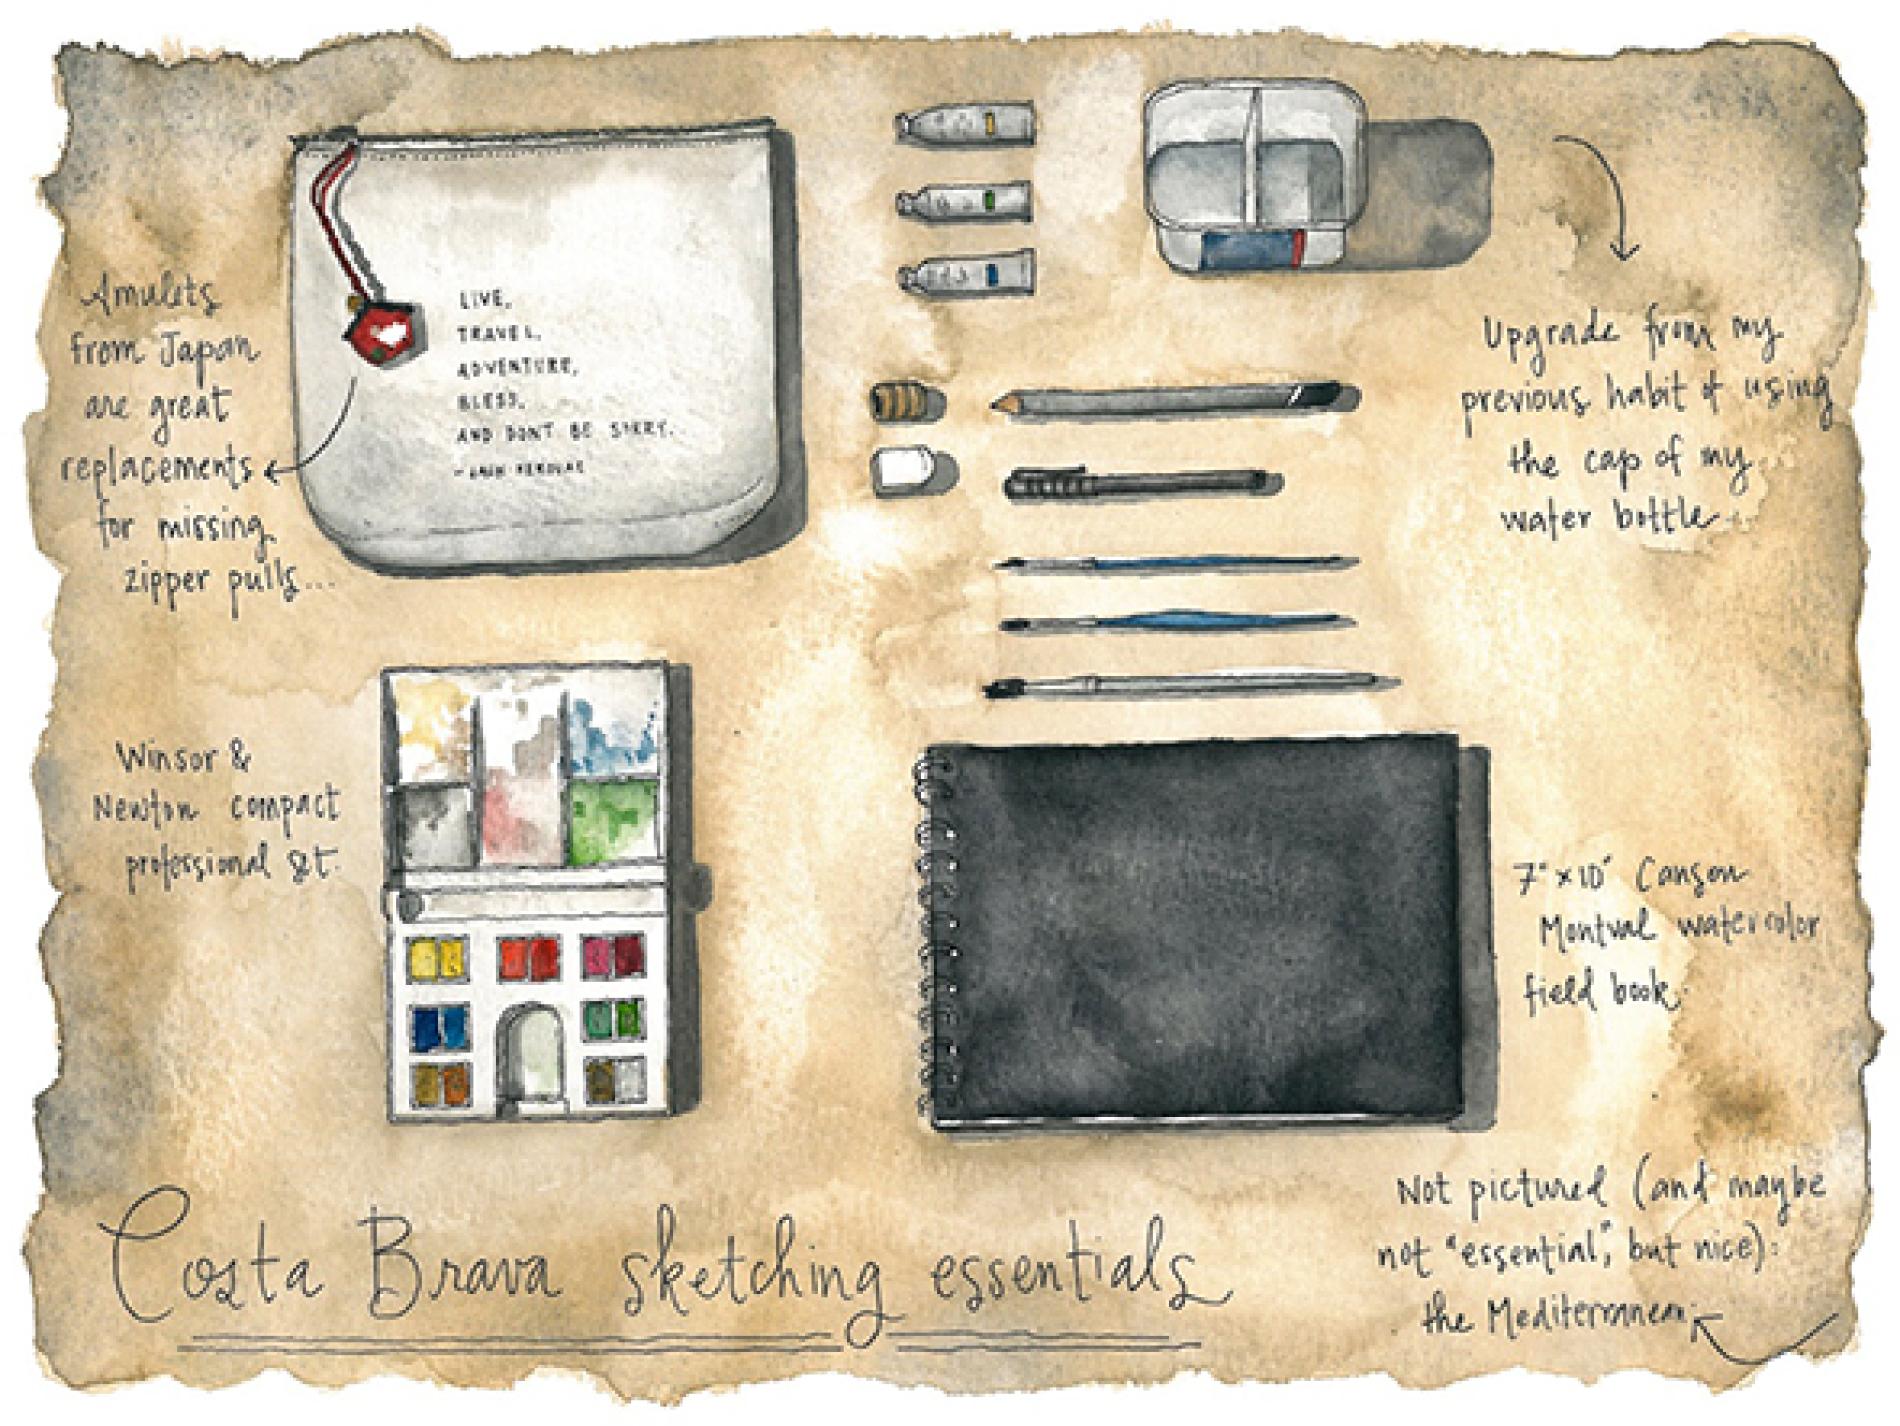 Amulets
from Japan
are great
replacements
for missing
zipper pulls...
LIVE,
TRAVEL,
ADVENTURE,
BLESS,
AND DON'T BE SORRY.
- JACK KEROUAC
Upgrade from my
previous habit of using
the cap of my
water bottle
Winsor &
Newton compact
professional set.
7"x10" Canson
Montval watercolor
field book
Costa Brava sketching essentials
Not pictured (and maybe
not "essential", but nice):
the Mediterranean